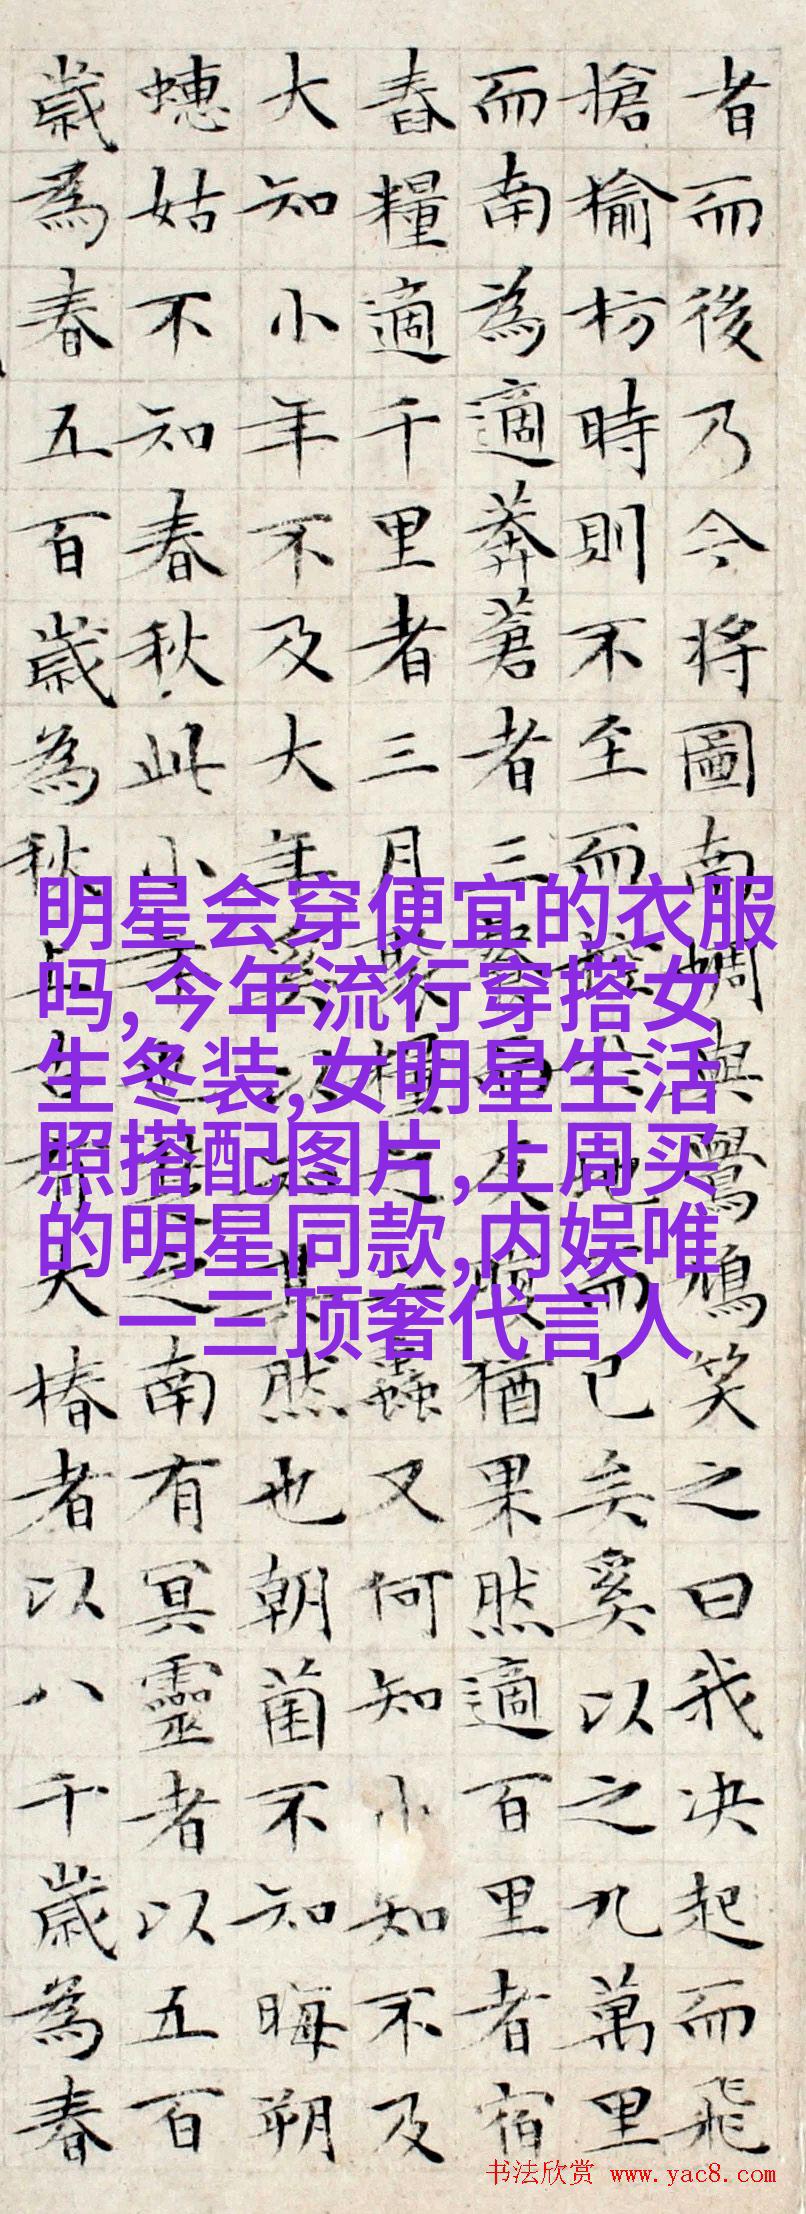 者而後乃今將圖南蜩與鷽鳩笑之曰我決起而飛
搶榆枋時則不至而控於地而已矣奚以之九萬里
而南為適莽蒼者三飡而反腹猶果然適百里者宿
舂糧適千里者三月聚糧之二蟲又何知小知不及
大知小年不及大年奚以知其然也朝菌不知晦朔
蟪姑不知春秋此小年也楚之南有冥靈者以五百
歲為春五百歲為秋上古有大椿者以八千歲為春
明星会穿便宜的衣服
吗,今年流行穿搭女
生冬装,女明星生活
照搭配图片,上周买
的明星同款,内娱唯
一三顶奢代言人
书法欣赏 www.yac8.com